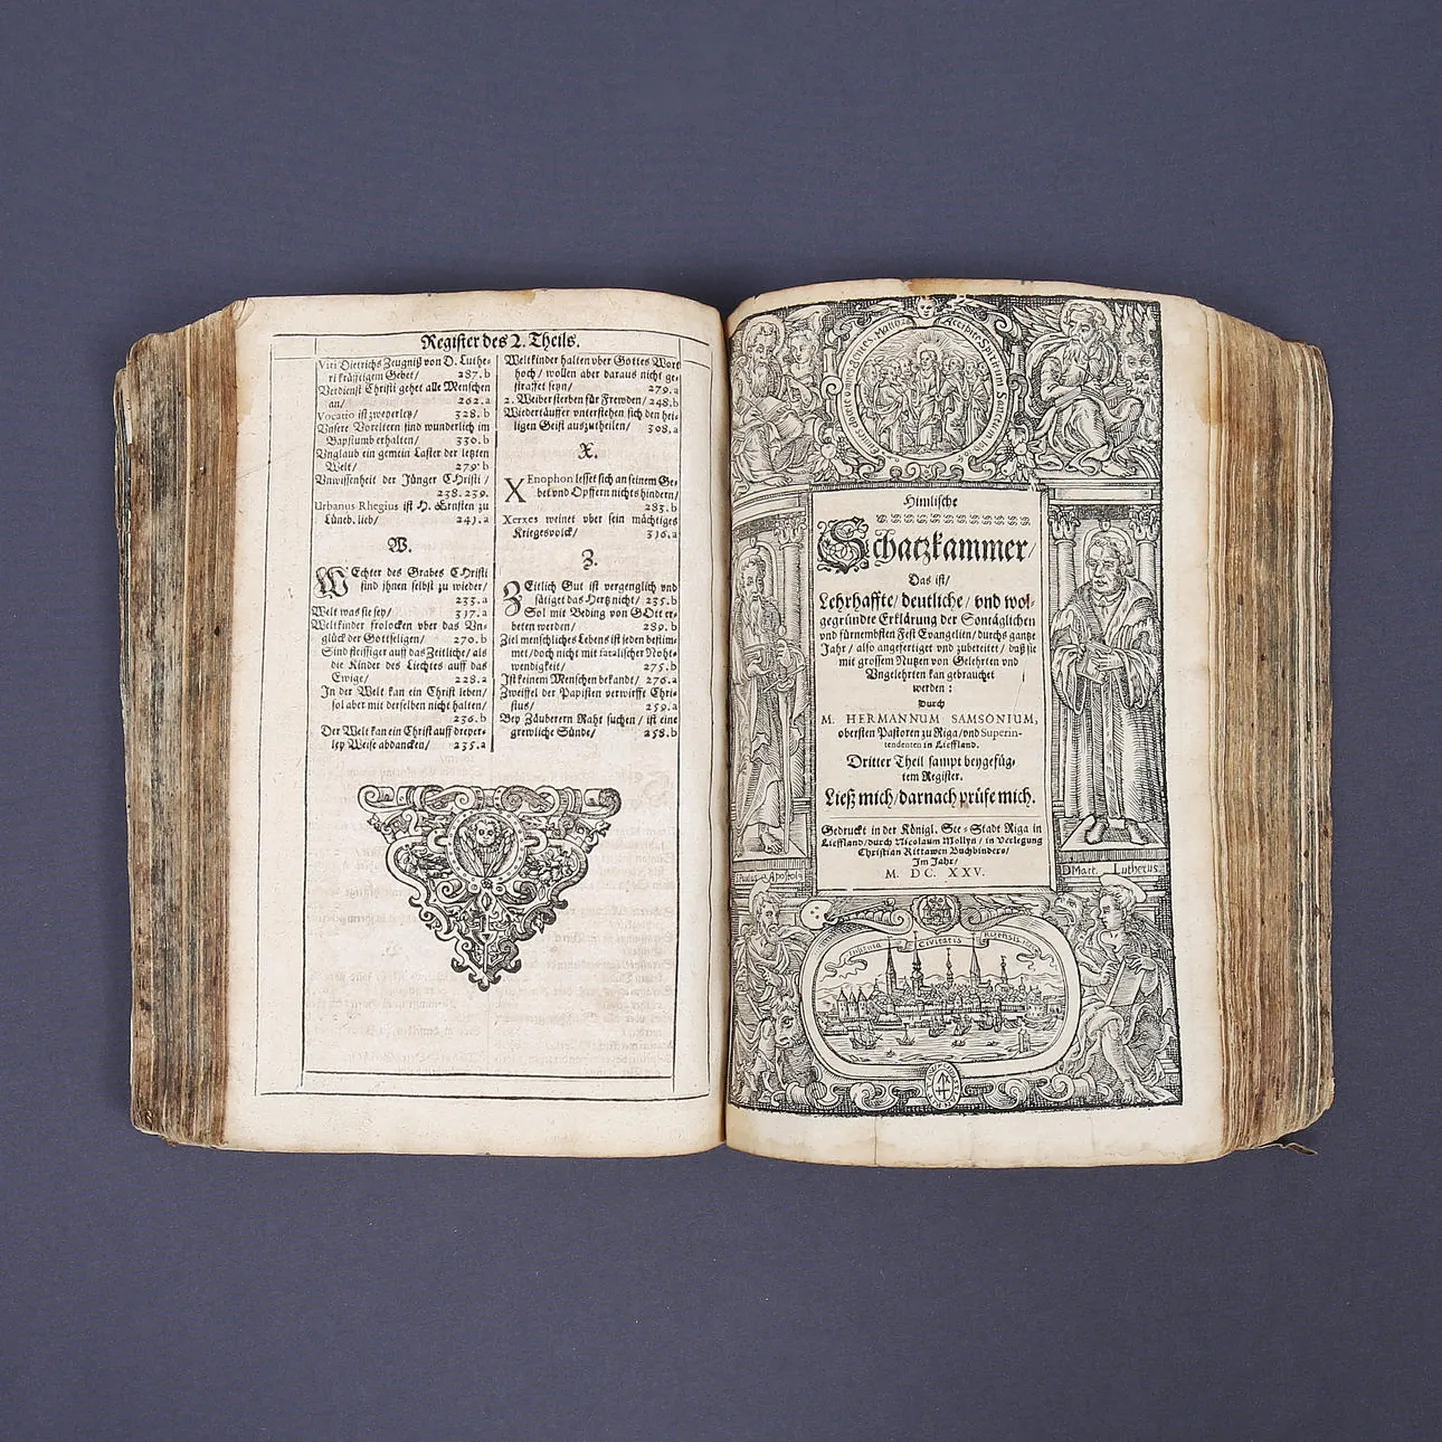 Register des 2. Theils.
Viti Dietrichs Zeugniß von D. Luthe-
ri kräfftigem Gebet/ 287.b
Verdienst Christi gehet alle Menschen
an/ 262.a
Vocatio ist zweyerley/ 328.b
Vnsere Voreltern sind wunderlich im
Bapstumb erhalten/ 330.b
Vnglaub ein gemein Laster der letzten
Welt/ 279.b
Vnwissenheit der Jünger CHristi/
238.239.
Urbanus Rhegius ist H. Ernsten zu
Lüneb. lieb/ 241.a
W.
WEchter des Grabes CHristi
sind ihnen selbst zu wieder/
233.a
Welt was sie sey/ 317.a
Weltkinder frolocken vber das Vn-
glück der Gottseligen/ 270.b
Sind fleissiger auff das Zeitliche/ als
die Kinder des Liechtes auff das
Ewige/ 228.a
In der Welt kan ein Christ leben/
sol aber mit derselben nicht halten/
236.b
Der Welt kan ein Christ auff dreyer-
ley Weise abdancken/ 235.a
Weltkinder halten vber Gottes Wort
hoch/ wollen aber daraus nicht ge-
straffet seyn/ 279.a
2. Weiber sterben für Frewden/ 248.b
Wiedertäuffer vnterstehen sich den hei-
ligen Geist auszutheilen/ 308.a
X.
XEnophon lesset sich an seinem Ge-
bet vnd Opffern nichts hindern/
283.b
Xerxes weinet vber sein mächtiges
Kriegesvolck/ 316.a
Z.
ZEitlich Gut ist vergenglich vnd
sätiget das Hertz nicht/ 235.b
Sol mit Beding von GOtt er-
beten werden/ 289.b
Ziel menschliches Lebens ist jeden bestim-
met/ doch nicht mit fatalischer Noht-
wendigkeit/ 275.b
Ist keinem Menschen bekandt/ 276.a
Zweiffel der Papisten verwirfft Chri-
stus/ 259.a
Bey Zäuberern Raht suchen/ ist eine
grewliche Sünde/ 258.b
Accipite Spiritum Sanctum
Himlische
Schatzkammer/
Das ist/
Lehrhaffte/ deutliche/ vnd wol-
gegründte Erklärung der Sontäglichen
vnd fürnembsten Fest Evangelien/ durchs gantze
Jahr/ also angefertiget vnd zubereitet/ daß sie
mit grossem Nutzen von Gelehrten vnd
Vngelehrten kan gebrauchet
werden:
Durch
M. HERMANNUM SAMSONIUM,
obersten Pastoren zu Riga/ vnd Superin-
tendenten in Lieffland.
Dritter Theil sampt beygefüg-
tem Register.
Ließ mich/ darnach prüfe mich.
Gedruckt in der Königl. See-Stadt Riga in
Lieffland/ durch Nicolaum Mollyn/ in Verlegung
Christian Rittawen Buchbinders/
Im Jahr/
M. DC. XXV.
Paulus Apostol9
D Mart. Lutherus.
Insignia Civitatis Rigensis